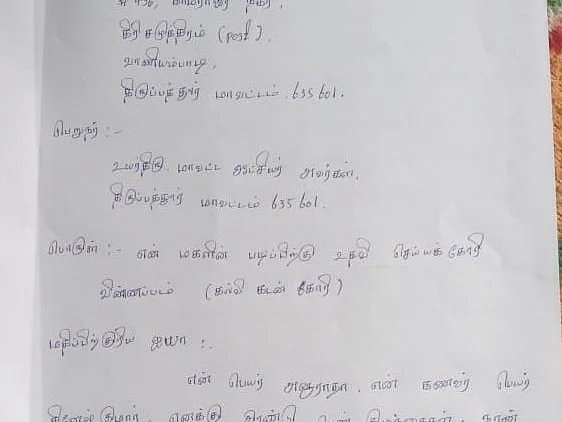 காமராஜர் நகர்,
கிரி சமுத்திரம் (post),
வாணியம்பாடி,
திருப்பத்தூர் மாவட்டம். 635 601.
பெறுநர் :-
உயர்திரு. மாவட்ட ஆட்சியர் அவர்கள்,
திருப்பத்தூர் மாவட்டம் 635 601.
பொருள் :- என் மகளின் படிப்பிற்கு உதவி செய்யக் கோரி
விண்ணப்பம் (கல்வி கடன் கோரி)
மதிப்பிற்குரிய ஐயா :.
என் பெயர் அனுராதா. என் கணவர் பெயர்
தினேஷ் குமார். எனக்கு இரண்டு பெண் பிள்ளைகள். நான்